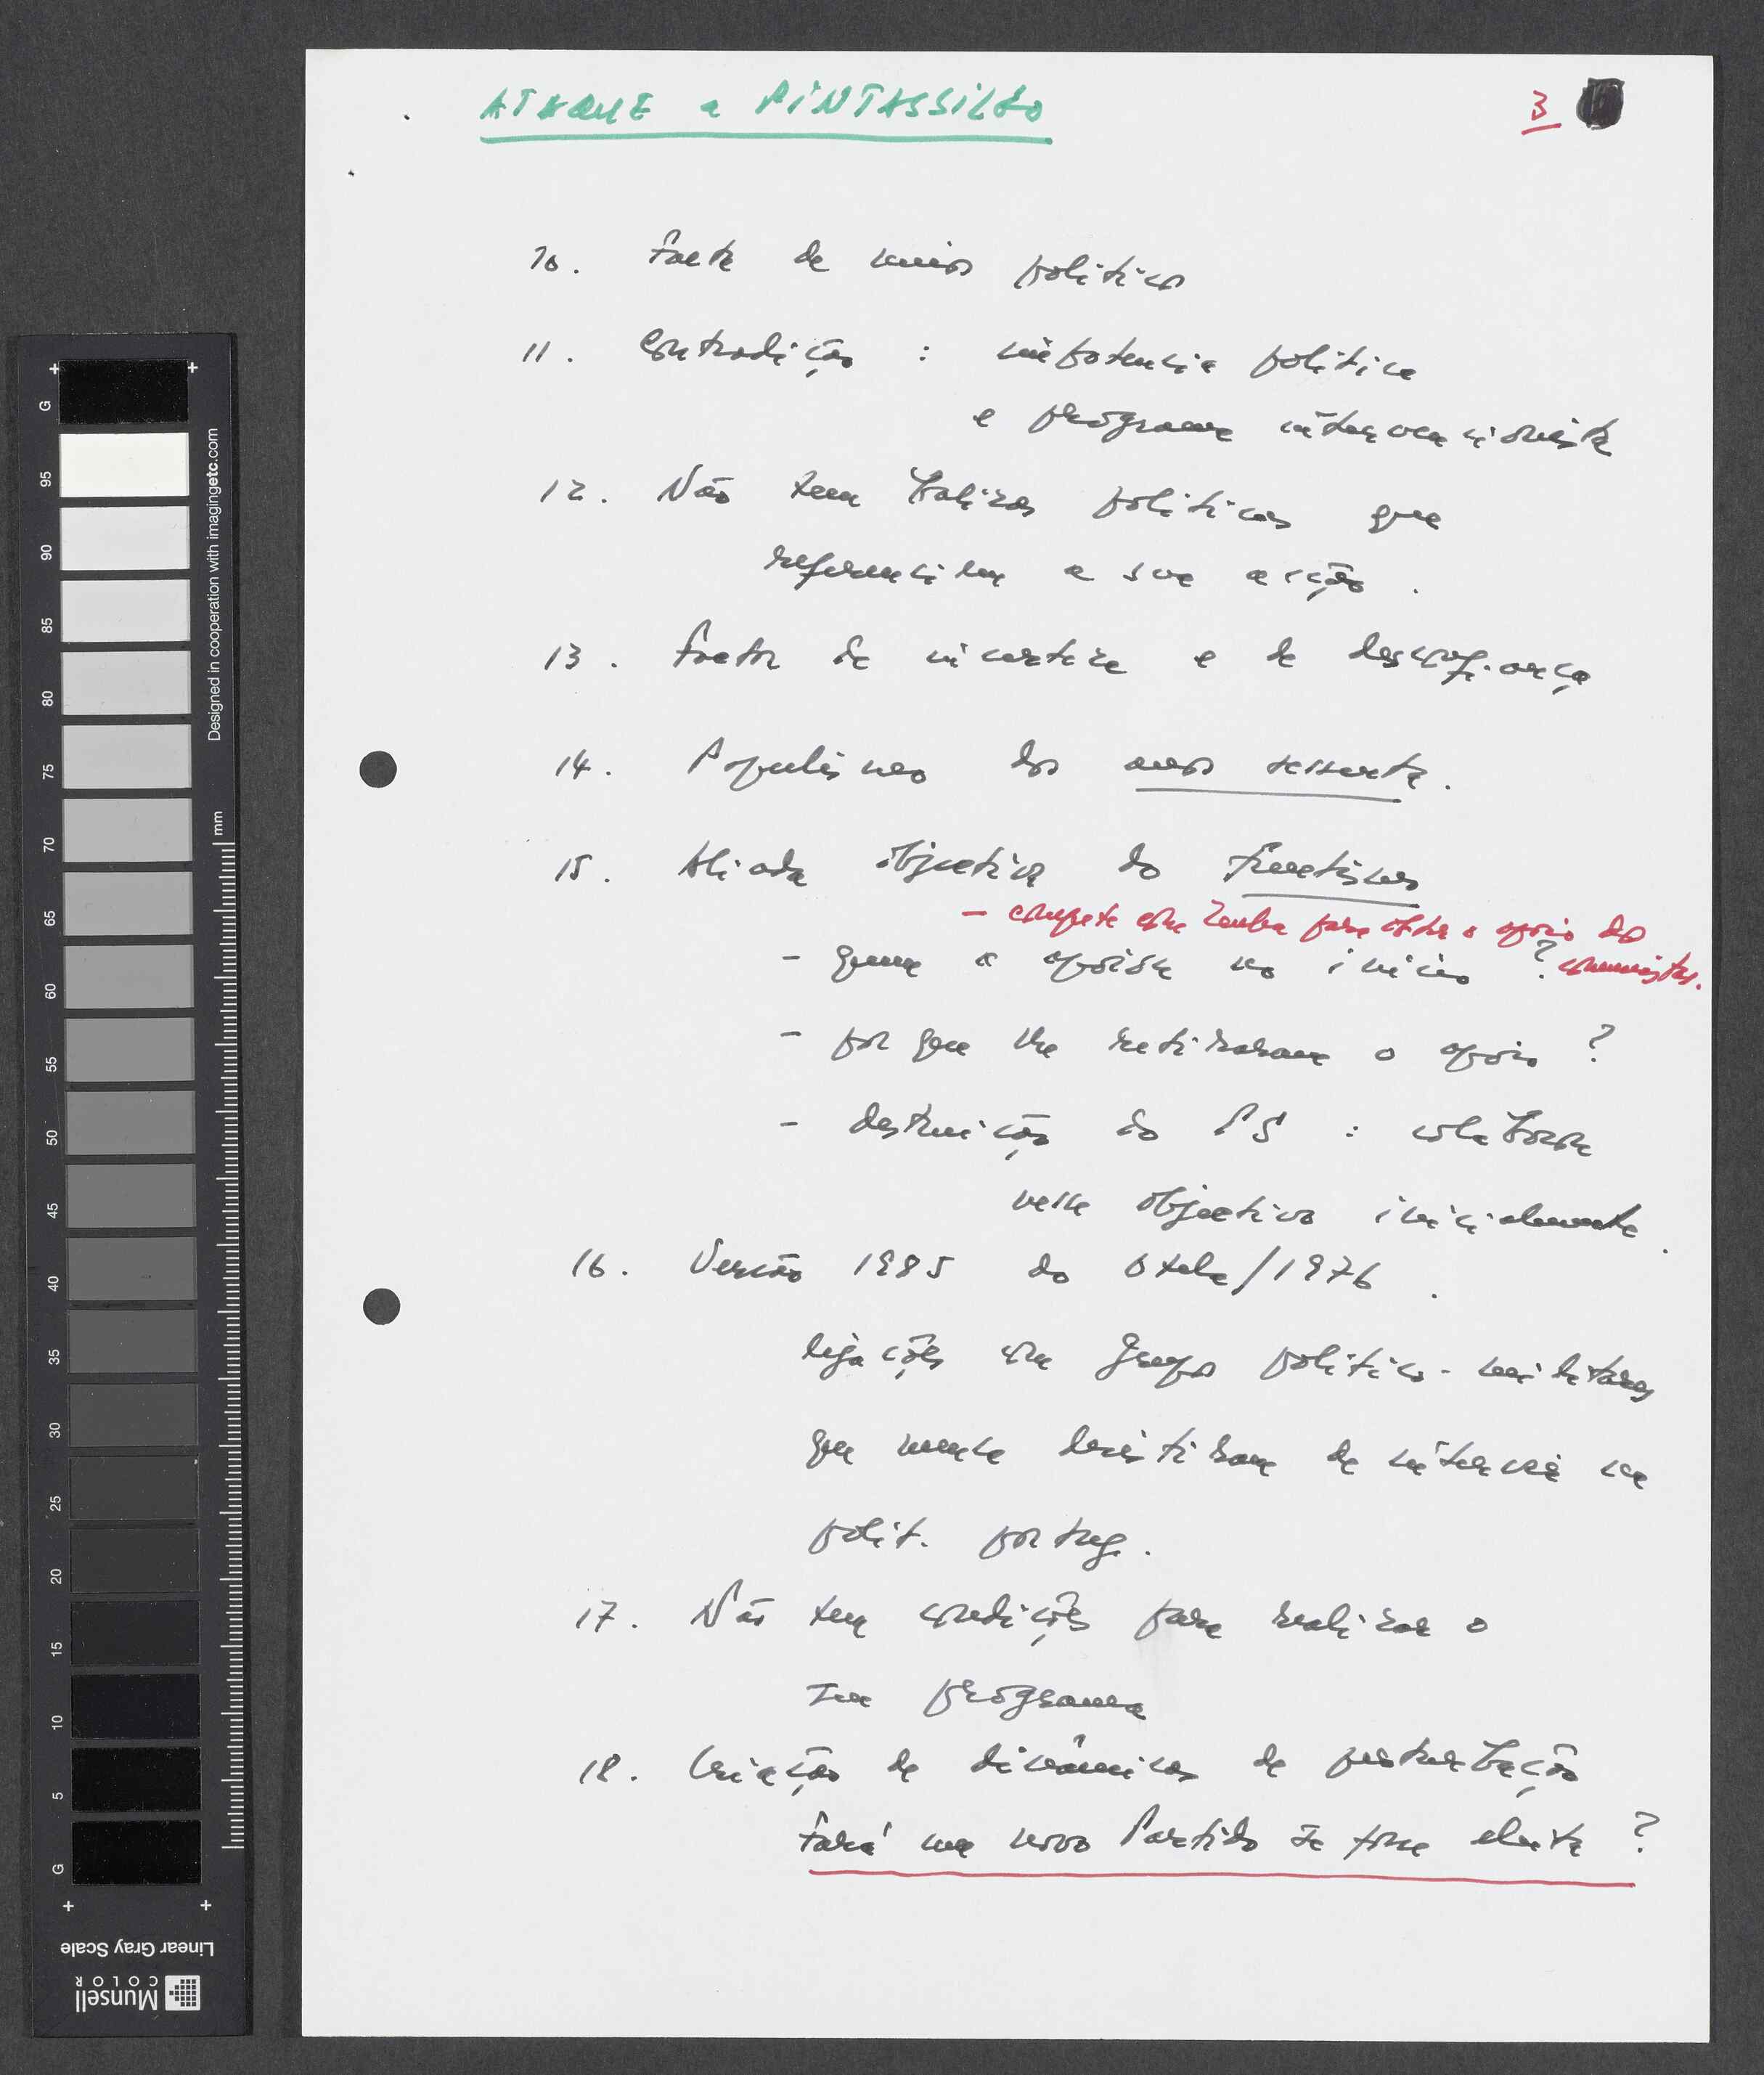 ATAQUE a PINTASSILGO
3
10. Facto de política
11. Contradição : impotencia politica
e programa intervencionista
12. Não tem balizas politicas que
referenciem a sua acção .
13. Factor de incerteza e de desconfiança
14. Populismo dos anos sessenta .
15. Aliada objectiva do freitismo
- compete com Zenha para obter o apoio dos
comunistas.
- quem a apoiou no inicio ?
- por que lhe retiraram o apoio ?
- destruição do PS : colabora
nesse objectivo inicialmente .
16. Versão 1985 do Otelo/1976 .
ligações com grupos politico-militares
que nunca desistiram de intervir na
polit. portug.
17. Não tem condições para realizar o
seu programa
18. Criação de dinâmicas de perturbação
fará um novo Partido se fosse eleita ?
G
95
90
85
80
75
70
65
60
55
50
45
40
35
30
25
20
15
10
5
G
mm
Designed in cooperation with imagingetc.com
Linear Gray Scale
Munsell
COLOR